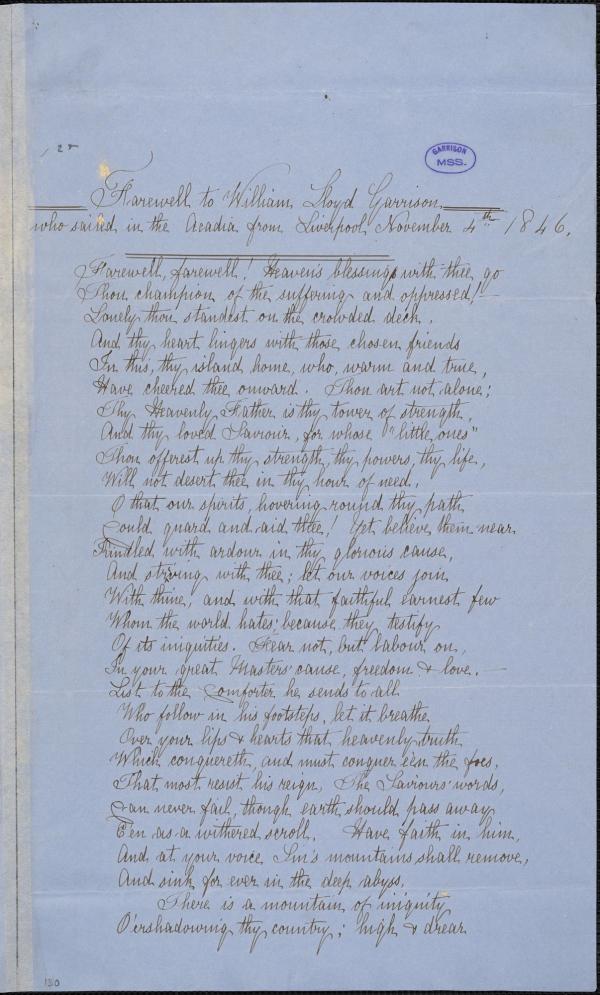 GARRISON
MSS.
Farewell to William Lloyd Garrison
who sailed in the Acadia from Liverpool, November 4th 1846.
Farewell, farewell! Heaven's blessings with thee go
Thou champion of the suffering and oppressed!—
Lonely thou standest on the crowded deck,
And thy heart lingers with those chosen friends
In this, thy island home, who, warm and true,
Have cheered thee onward. Thou art not alone;
Thy Heavenly Father is thy tower of strength,
And thy loved Saviour, for whose "little ones"
Thou offerest up thy strength, thy powers, thy life,
Will not desert thee in thy hour of need.
O that our spirits, hovering round thy path
Could guard and aid thee! Yet believe them near
Kindled with ardour in thy glorious cause,
And striving with thee; let our voices join
With thine, and with that faithful earnest few
Whom the world hates; because they testify
Of its iniquities. Fear not, but labour on,
In your great Masters' cause, freedom & love.—
List to the Comforter he sends to all
Who follow in his footsteps, let it breathe
Over your lips & hearts that heavenly truth
Which conquereth, and must conquer e'en the foes,
That most resist his reign, The Saviours' words,
Can never fail, though earth should pass away
E'en as a withered scroll. Have faith in him,
And at your voice Sin's mountains shall remove,
And sink for ever in the deep abyss.
There is a mountain of iniquity
O'ershadowing thy country; high & drear
130